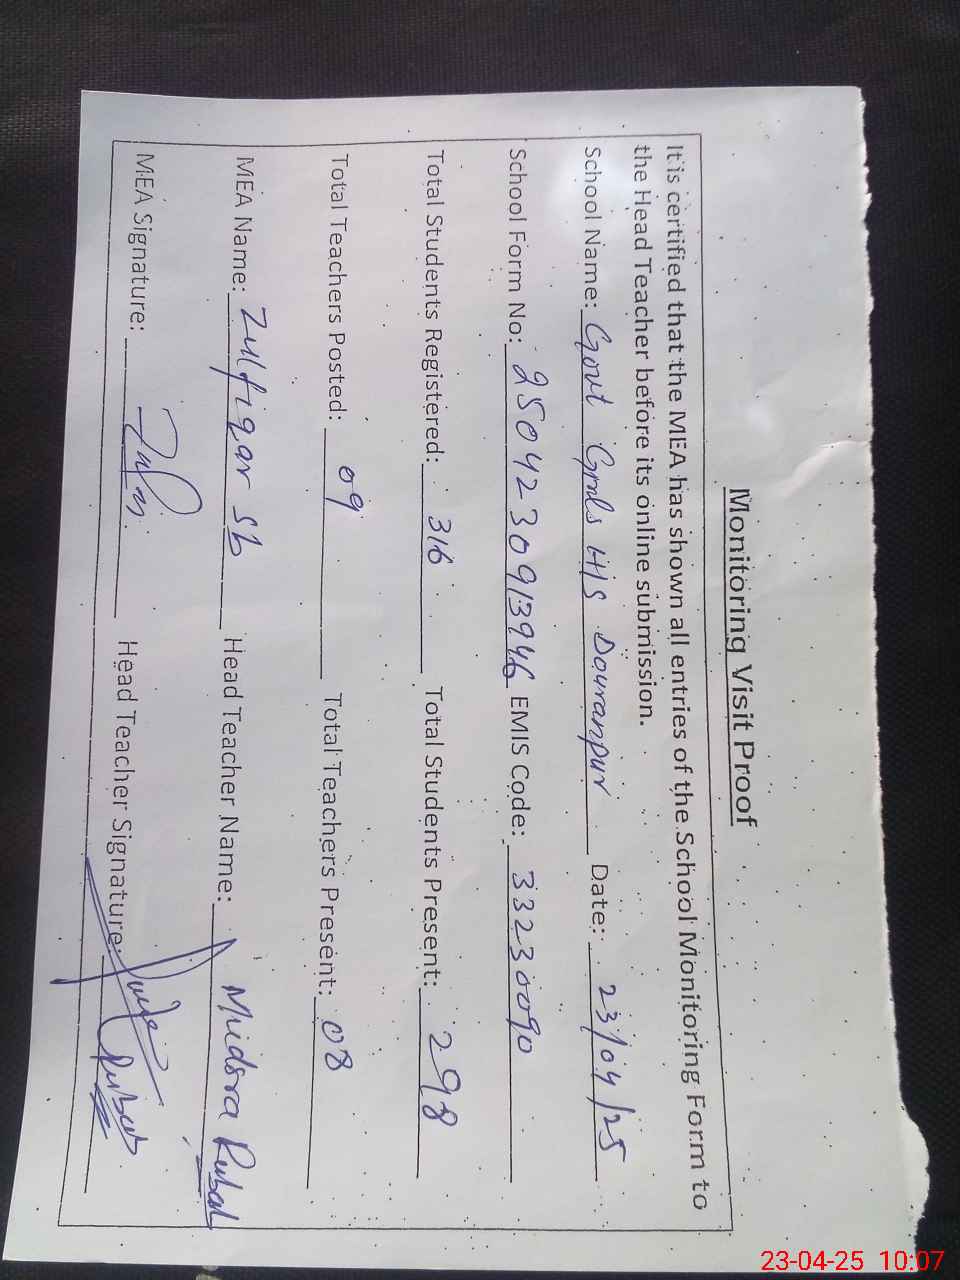 Monitoring Visit Proof
It is certified that the MEA has shown all entries of the School Monitoring Form to
the Head Teacher before its online submission.
School Name: Govt Grls H/S Douranpur Date: 23/04/25
School Form No: 2504230913946 EMIS Code: 33230090
Total Students Registered: 316 Total Students Present: 298
Total Teachers Posted: 09 Total Teachers Present: 08
MEA Name: Zulfiqar Sb Head Teacher Name:
MEA Signature: Head Teacher Signature:
23-04-25 10:07